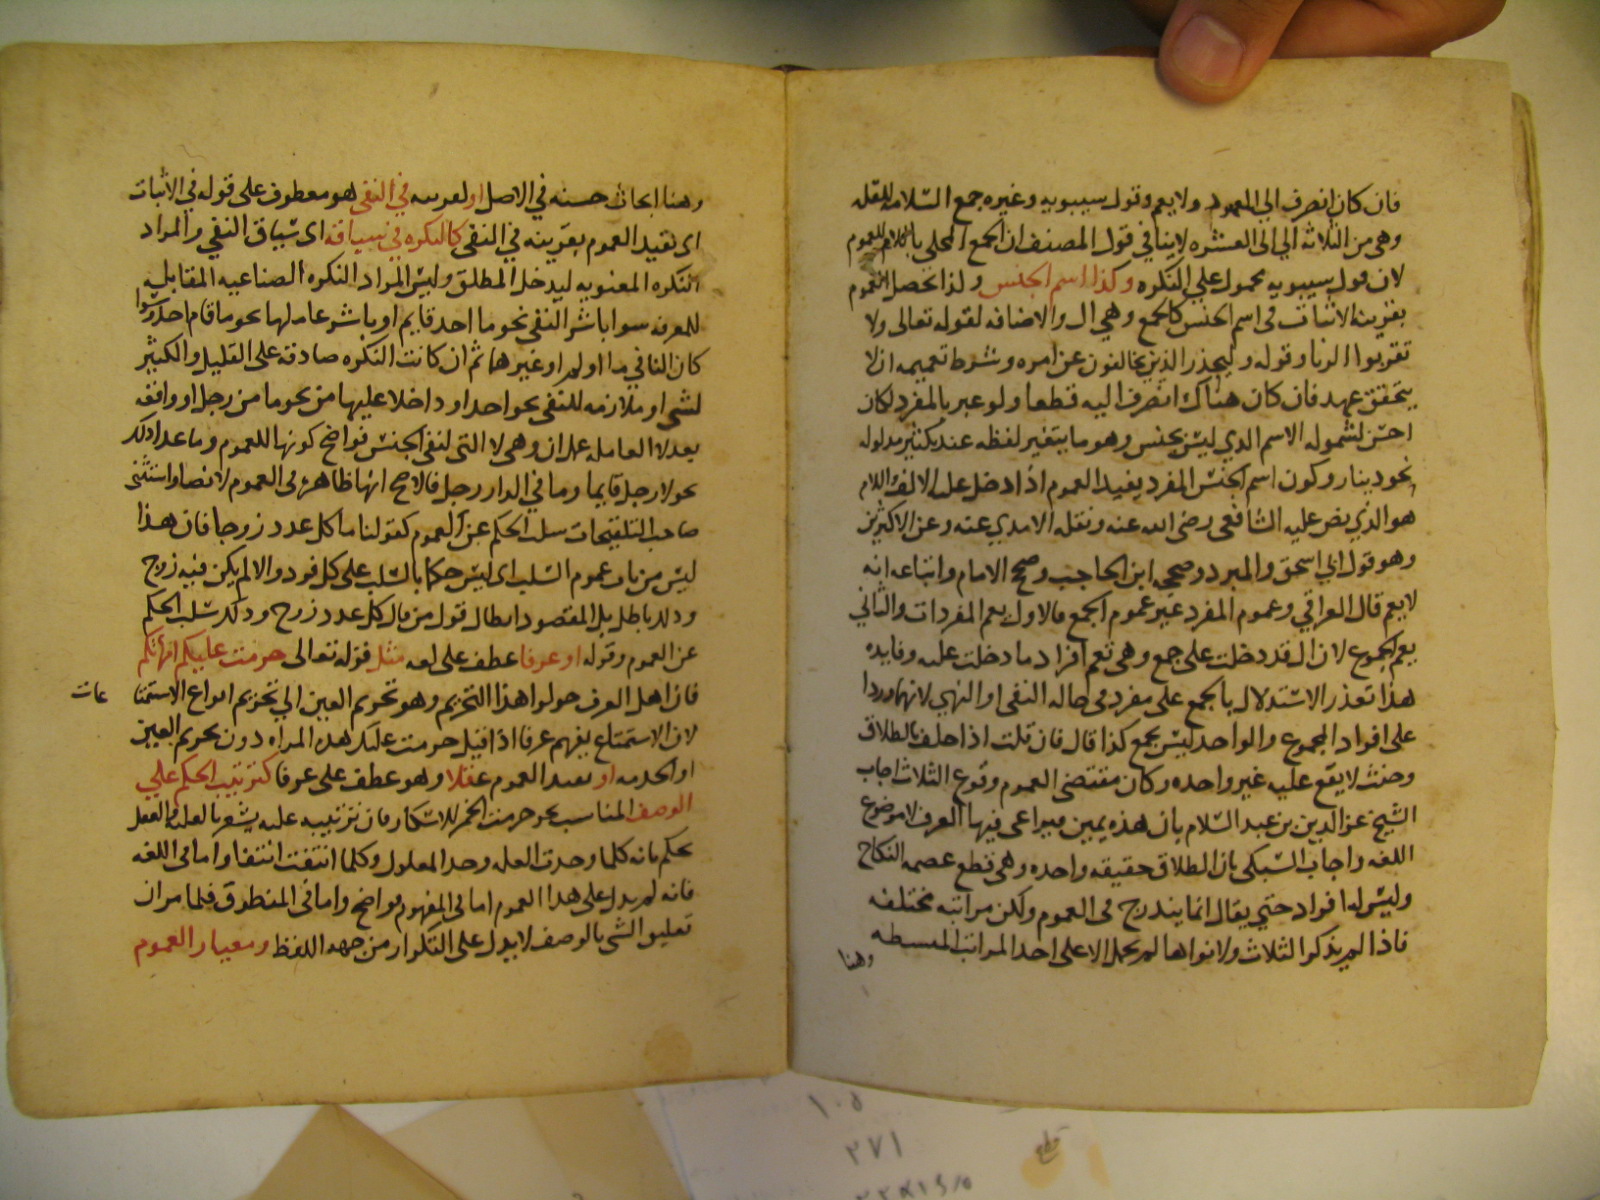 فان كان انصرف الى المعهود ولا يعم وقول سيبويه وغيره جمع السلامه للقله
وهى من الثلاثه الى العشره لا ينافي قول المصنف ان الجمع المحلى باللام للعموم
لان قول سيبويه محمول على النكره وكذا اسم الجنس ولذا تحصل العموم
بقرينة الاثبات فى اسم الجنس كالجمع وهى ال والاضافه لقوله تعالى ولا
تقربوا الزنا وقوله وليحذر الذين يخالفون عن امره وشرط تعميمه ان لا
يتحقق عهد فان كان هناك انصرف اليه قطعا ولو عبر بالمفرد لكان
احسن لشموله الاسم الذي ليس بجنس وهو ما يتغير لفظه عند تكثير مدلوله
نحو دينار وكون اسم الجنس المفرد يفيد العموم اذا دخل عليه الالف واللام
هو الذي نص عليه الشافعى رضى الله عنه ونقله الامدي عنه وعن الاكثرين
وهو قول ابي اسحق والمبرد وصححه ابن الحاجب وصحح الامام واتباعه انه
لا يعم قال العراقي وعموم المفرد غير عموم الجمع فالاول يعم المفردات والثاني
يعم الجموع لان ال قد دخلت على جمع وهى تعم افراد ما دخلت عليه وفايده
هذا تعذر الاستدلال بالجمع على مفرد فى حاله النفى او النهى لانهما وردا
على افراد الجموع والواحد ليس بجمع كذا قال فان قلت اذا حلف بالطلاق
وحنث لا يقع عليه غير واحده وكان مقتضى العموم وقوع الثلاث اجاب
الشيخ عز الدين بن عبد السلام بان هذه يمين فيراعى فيها العرف لا موضوع
اللغه واجاب السبكى بان الطلاق حقيقه واحده وهى قطع عصمه النكاح
وليس له افراد حتى يقال انما يندرج فى العموم ولكن مراتبه مختلفه
فاذا لم يذكر الثلاث ولا نواها لم يحمل الا على احد المراتب
وهنا
وهنا ابحاث حسنه في الاصل او لقرينه في النفى هو معطوف على قوله في الاثبات
اى تفيد العموم بقرينه في النفى كالنكره في سياقه اى سياق النفي والمراد
النكره المعنويه ليدخل المطلق وليس المراد النكره الصناعيه المقابله
للمعرفه سوا باشر النفى نحو ما احد قايم او باشر عاملها نحو ما قام احد وسوا
كان النافي ما او لم او غيرهما ثم ان كانت النكره صادقه على القليل والكثير
لشى او ملازمه للنفى نحو احد او داخلا عليها من نحو ما من رجل او واقعه
بعد لا العامله عمل ان وهى لا التى لنفى الجنس فواضح كونها للعموم وما عدا ذلك
نحو لا رجل قايما وما في الدار رجل فالاصح انها ظاهره فى العموم لا نصا واستثنى
صاحب التلقيحات سلب الحكم عن العموم كقولنا ما كل عدد زوجا فان هذا
ليس من باب عموم السلب اى ليس حكما بالسلب على كل فرد والا لم يكن فيه زوج
وذلك باطل بل المقصود ابطال قول من قال كل عدد زوج وذلك سلب الحكم
عن العموم وقوله او عرفا عطف على لغه مثل قوله تعالى حرمت عليكم امهاتكم
فان اهل العرف حولوا هذا التحريم وهو تحريم العين الى تحريم انواع الاستمتا
عات
لان الاستمتاع يفهم عرفا اذا قيل حرمت عليك هذه المراه دون تحريم العين
او الخدمه او تفيد العموم عقلا وهو عطف على عرفا كترتيب الحكم على
الوصف المناسب نحو حرمت الخمر للاسكار فان ترتيبه عليه يشعر بالعليه والعقل
يحكم بانه كلما وجدت العله وجد المعلول وكلما انتفت انتفا واما فى اللغه
فانه لم يدل على هذا العموم اما فى المفهوم فواضح واما فى المنطوق فلما مر ان
تعليق الشى بالوصف لا يدل على التكرار من جهه اللفظ ومعيار العموم
١٠٥
٢٧١